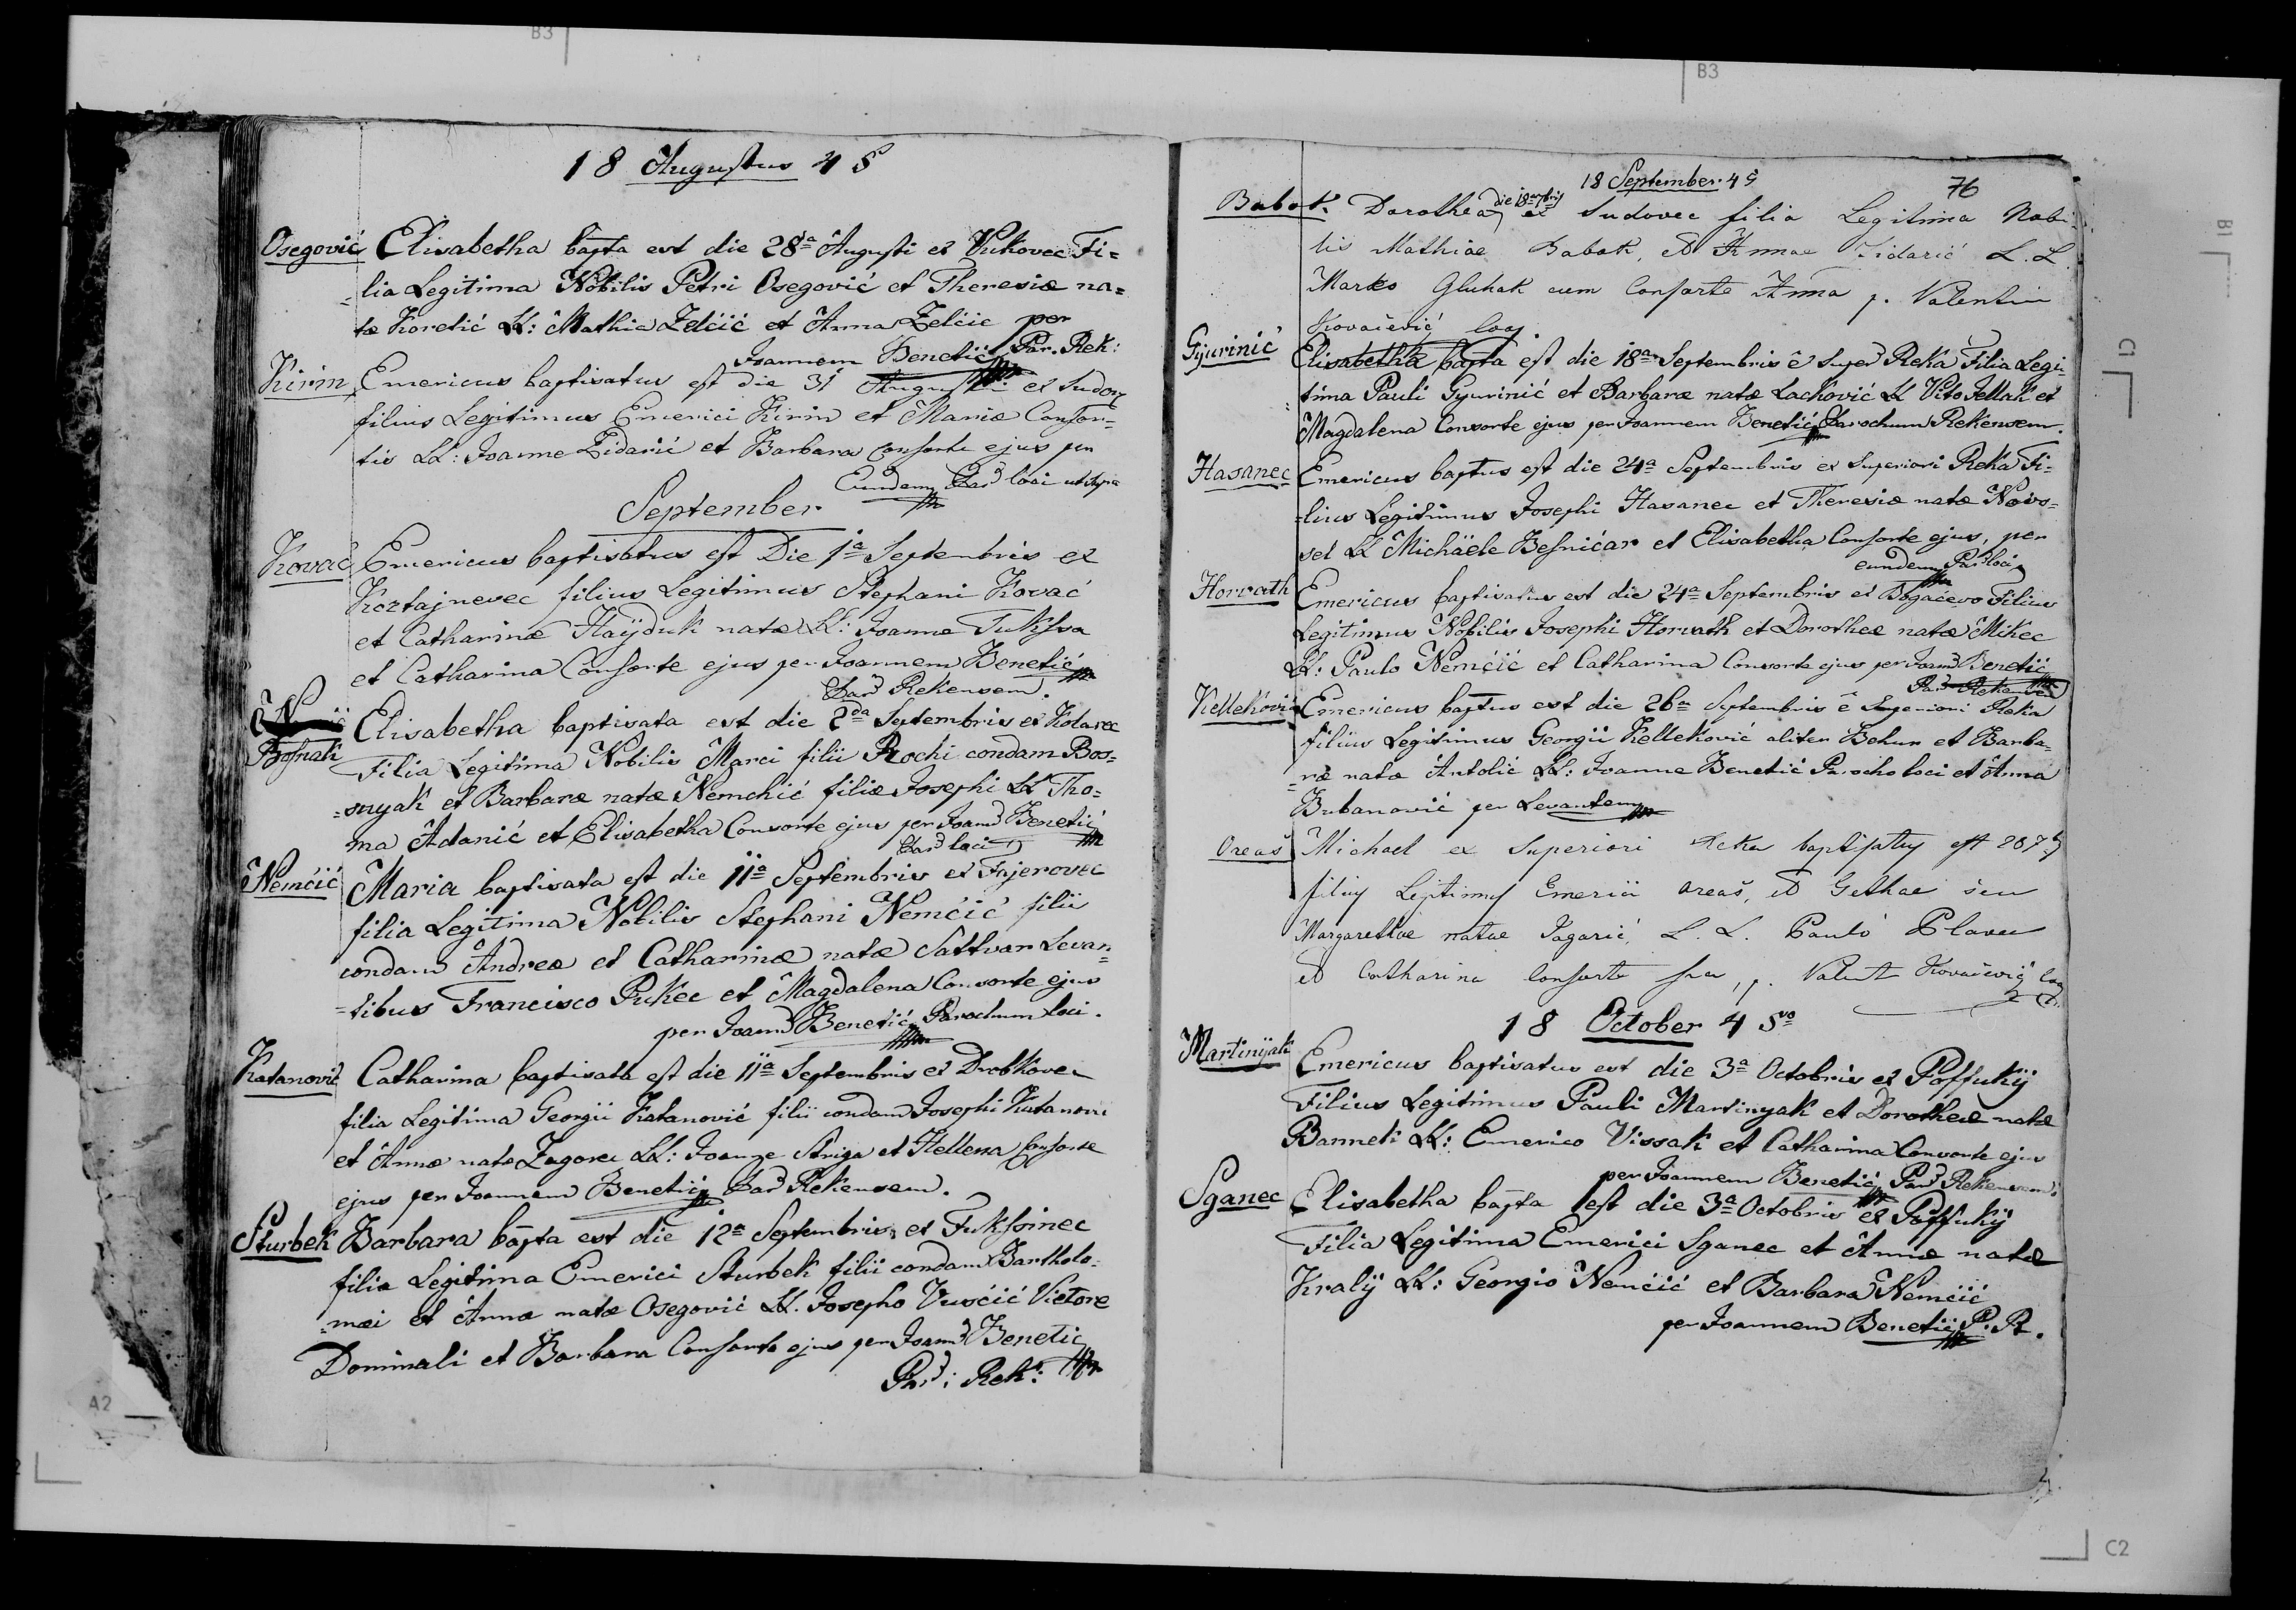 B3
18 Augustus 45
Osegović Elisabetha bapta est die 28a Augusti ex Vukovec Fi=
=lia Legitima Nobilis Petri Osegović et Theresiæ na=
tæ Koretić LL: Mathia Zelčić et Anna Zelčić per
Joannem Benetić Par. Rek:
Kirin Emericus baptisatus est die 31 Augusti ex Sudov
filius Legitimus Emerici Kirin et Mariæ Consor=
tis LL: Joanne Zidarić et Barbara consorte ejus per
Eundem Par loci ut supra
September
Kovač Emericus baptisatus est Die 1a Septembris ex
Koztajnevec filius Legitimus Stephani Kovač
et Catharinæ Hayduk natæ LL: Joanne Tukssa
et Catharina Consorte ejus per Joannem Benetić
Par Rekensem.
Elisabetha baptisata est die 2da Septembris ex Kolarec
Bosnak Filia Legitima Nobilis Marci filii Rochi condam Bos=
=snyak et Barbaræ natæ Nemchić filiæ Josephi LL Tho=
ma Adanić et Elisabetha Consorte ejus per Joam Benetić
Par loci
Nemčić Maria baptisata est die 11a Septembris ex Fajerovec
filia Legitima Nobilis Stephani Nemčić filii
condam Andreæ et Catharinæ natæ Sattvar Levan=
=tibus Francisco Pukec et Magdalena Consorte ejus
per Joam Benetić Parochum loci.
Katanović Catharina baptisata est die 11a Septembris ex Drobkovec
filia Legitima Georgii Katanović filii condam Josephi Katanović
et Annæ natæ Zagorec LL: Joanne Striga et Hellena Consorte
ejus per Joannem Benetić Par Rekensem.
Sturbek Barbara bapta est die 12a Septembris ex Tukssinec
filia Legitima Emerici Sturbek filii condam Bartholo=
=mæi et Annæ natæ Osegović LL. Josepho Vusčić Victore
Dominali et Barbara Consorte ejus per Joam Benetić
Par: Rek:
A2
B3
18 September 45
76
Babok. Dorothea die 18a 7bris ex Sudovec filia Legitima Nobi
lis Mathiae Babok, et Annae Zidarić L. L.
Marko Gluhak cum Consorte Anna p. Valentin
Kovačević Coop.
Gyurinić Elisabetha bapta est die 18a Septembris ê Super Reka Filia Legi=
tima Pauli Gyurinić et Barbaræ natæ Lacković LL Vito Jellak et
Magdalena Consorte ejus per Joannem Benetić Parochum Rekensem.
Hasanec Emericus baptus est die 24a Septembris ex Superiori Reka Fi=
=lius Legitimus Josephi Hasanec et Theresiæ natæ Novo=
sel LL Michäele Besničar et Elisabetha Consorte ejus, per
eundem Par loci
Horvath Emericus baptisatus est die 24a Septembris ex Bogačevo Filius
Legitimus Nobilis Josephi Horvath et Dorotheæ natæ Mikec
LL: Paulo Nemčić et Catharina Consorte ejus per Joam Benetić
Par Rekensem
Kelleković Emericus baptus est die 26a Septembris ê Superiori Reka
filius Legitimus Georgii Kelleković aliter Behur et Barba=
ræ natæ Antolić LL: Joanne Benetić Parocho loci et Anna
Bubanović per Levantem
Oreaš Michael ex Superiori Reka baptisatus est 28 7b
filius Legitimus Emerici Oreaš, et Gethae seu
Margarethae natae Jagarić, L. L. Paulo Plavec
et Catharina Consorte sua, p. Valent Kovačević Coop
18 October 45vo
Martinyak Emericus baptisatus est die 3a Octobris ex Possukÿ
Filius Legitimus Pauli Martinyak et Dorotheæ natæ
Bannek LL: Emerico Vissak et Catharina Consorte ejus
per Joannem Benetić Par Rekensem.
Sganec Elisabetha bapta est die 3a Octobris ex Possukÿ
Filia Legitima Emerici Sganec et Annæ natæ
Kralÿ LL: Georgio Nemčić et Barbara Nemčić
per Joannem Benetić P. R.
B1
C1
C2